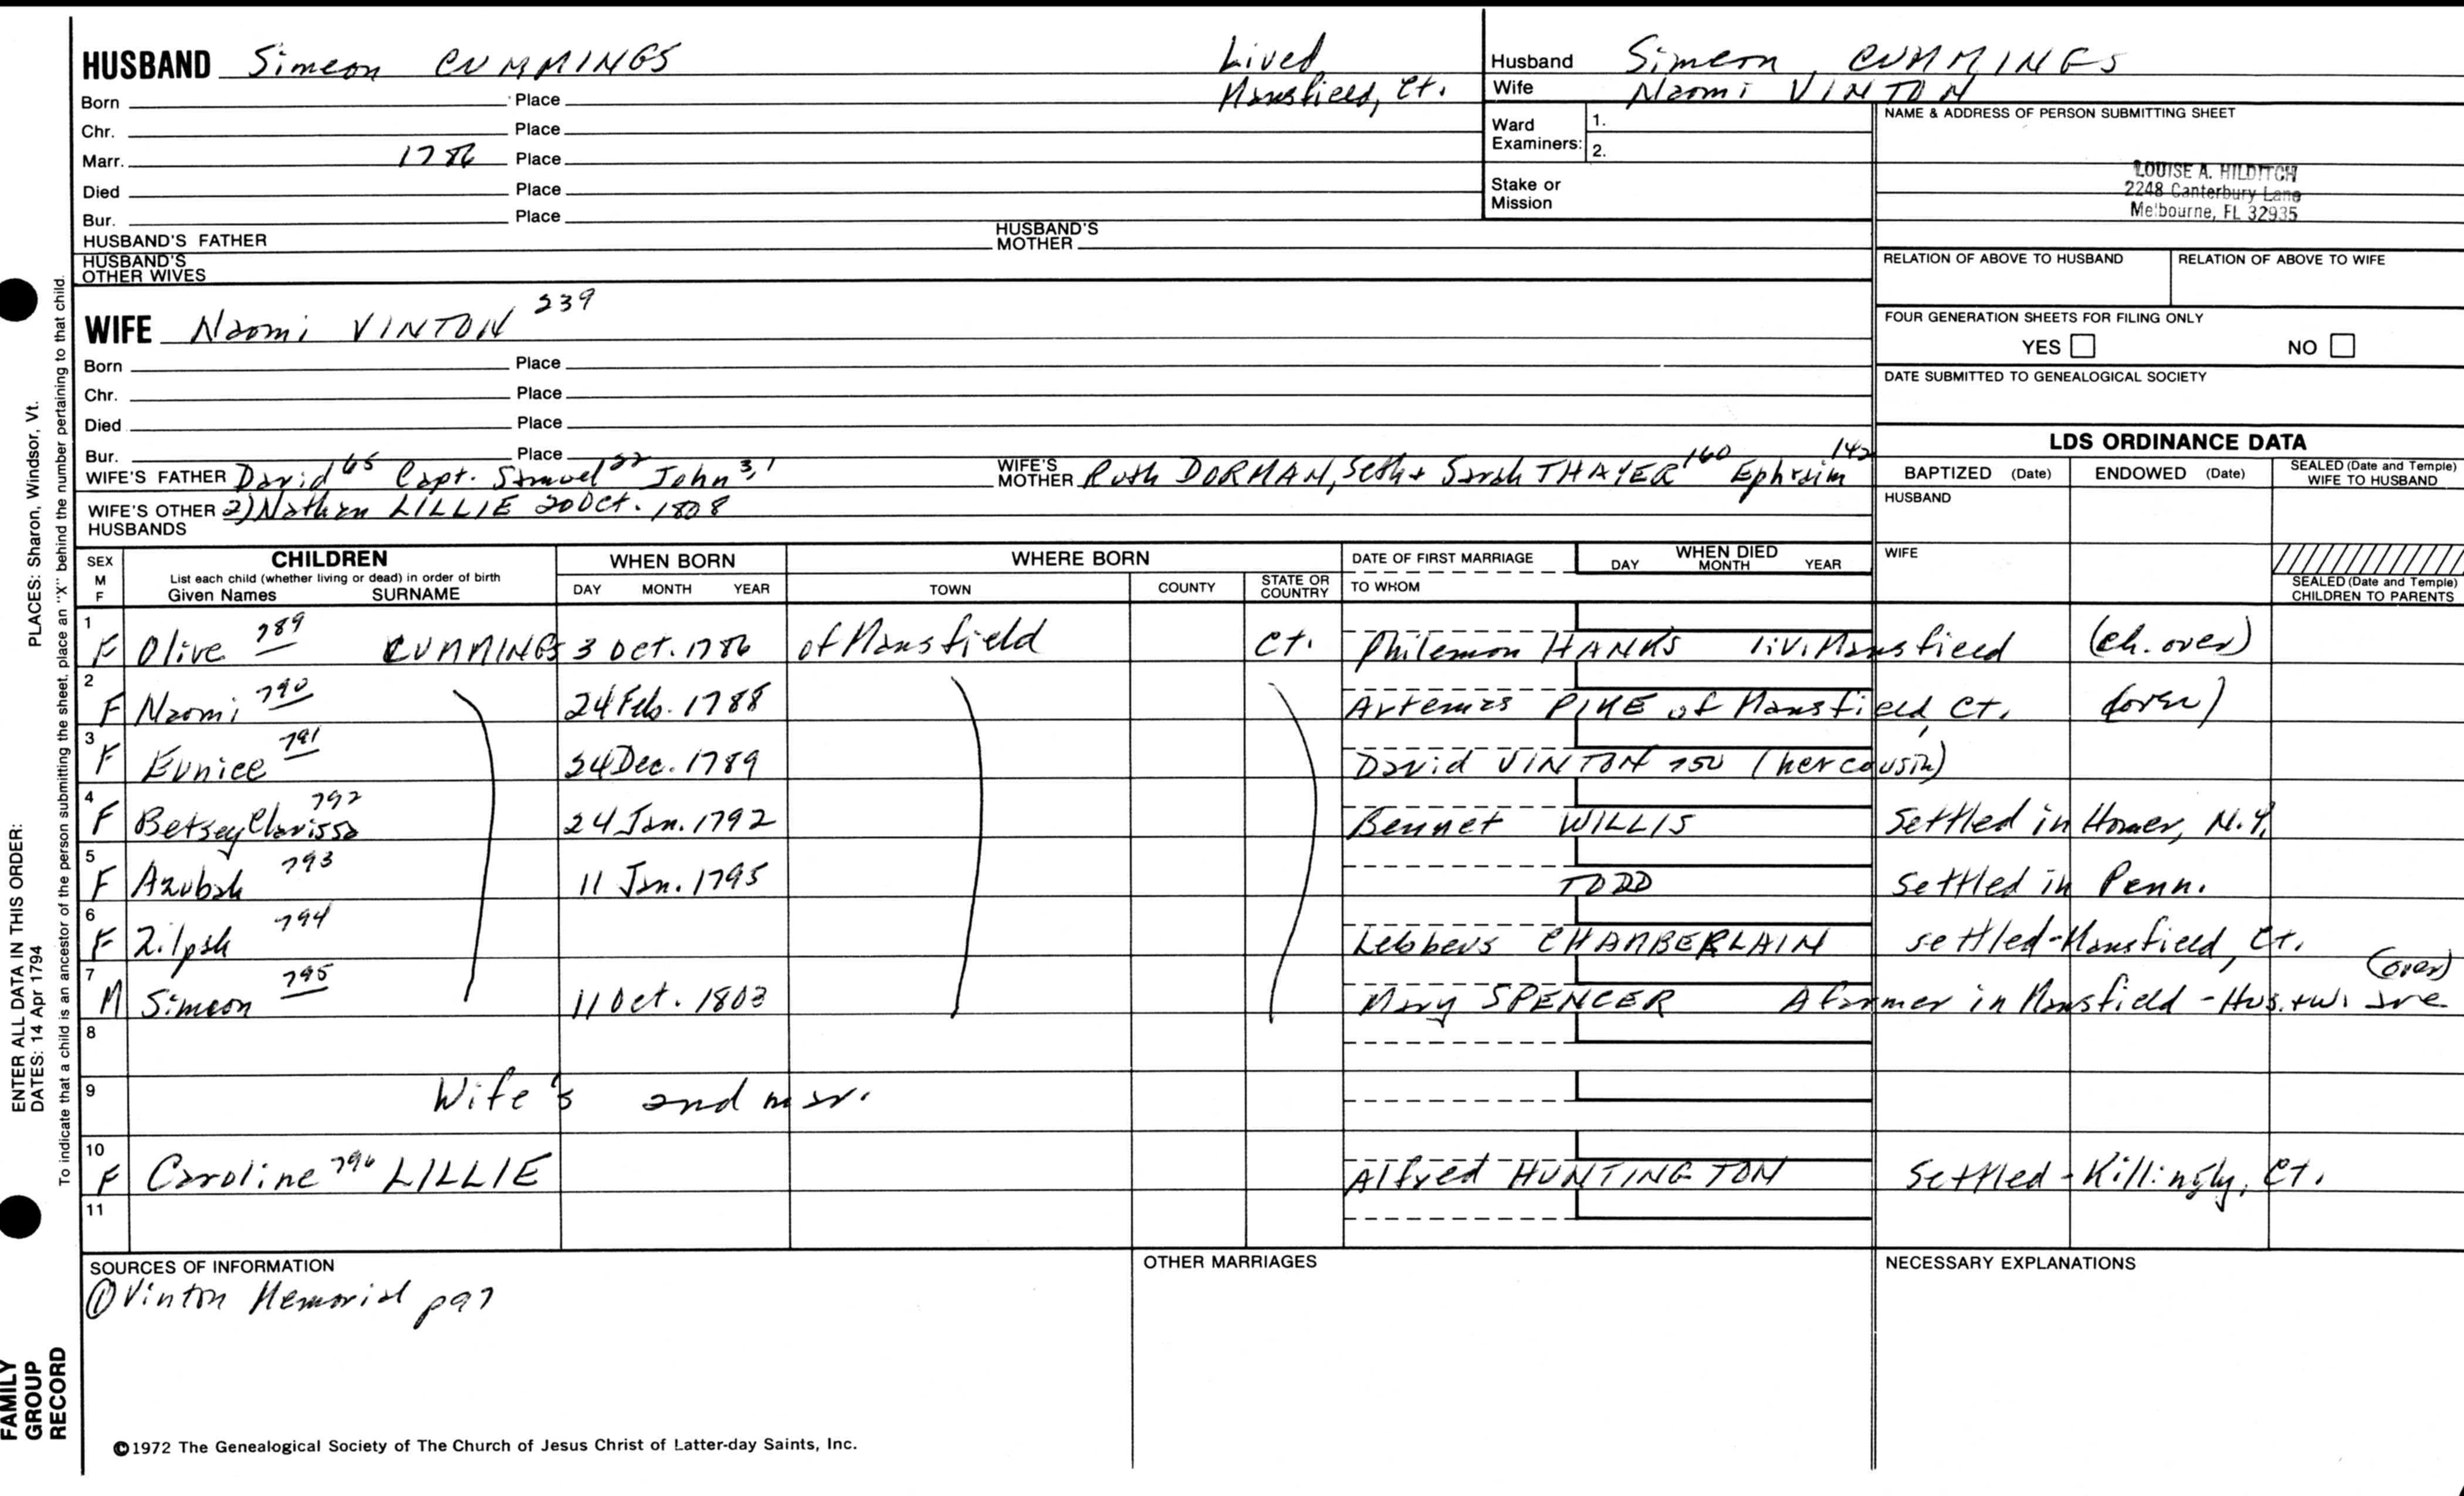 HUSBAND Simeon CUMMINGS Lived
Mansfield, Ct.
Born Place
Chr. Place
Marr. 1786 Place
Died Place
Bur. Place
HUSBAND'S FATHER HUSBAND'S MOTHER
HUSBAND'S OTHER WIVES
Husband Simeon CUMMINGS
Wife Naomi VINTON
Ward Examiners: 1.
2.
Stake or Mission
NAME & ADDRESS OF PERSON SUBMITTING SHEET
LOUISE A. HILDITCH
2248 Canterbury Lane
Melbourne, FL 32935
RELATION OF ABOVE TO HUSBAND RELATION OF ABOVE TO WIFE
FOUR GENERATION SHEETS FOR FILING ONLY
YES NO
DATE SUBMITTED TO GENEALOGICAL SOCIETY
WIFE Naomi VINTON 239
Born Place
Chr. Place
Died Place
Bur. Place
WIFE'S FATHER David 65 Capt. Samuel 22 John 3,1 WIFE'S MOTHER Ruth DORMAN, Seth + Sarah THAYER 160 Ephraim 142
WIFE'S OTHER HUSBANDS 2) Nathan LILLIE 20 Oct. 1808
LDS ORDINANCE DATA
BAPTIZED (Date) ENDOWED (Date) SEALED (Date and Temple) WIFE TO HUSBAND
HUSBAND
WIFE
SEALED (Date and Temple) CHILDREN TO PARENTS
SEX M F CHILDREN WHEN BORN WHERE BORN DATE OF FIRST MARRIAGE WHEN DIED
List each child (whether living or dead) in order of birth
Given Names SURNAME DAY MONTH YEAR TOWN COUNTY STATE OR COUNTRY TO WHOM DAY MONTH YEAR
1 F Olive 789 CUMMINGS 3 Oct. 1786 of Mansfield Ct. Philemon HANKS liv. Mansfield (ch. over)
2 F Naomi 790 24 Feb. 1788 Artemas PIKE of Mansfield, Ct. (over)
3 F Eunice 791 24 Dec. 1789 David VINTON 750 (her cousin)
4 F Betsey Clarissa 792 24 Jan. 1792 Bennet WILLIS Settled in Homer, N.Y.
5 F Azubah 793 11 Jan. 1795 TODD settled in Penn.
6 F Zilpah 794 Lebbeus CHAMBERLAIN settled - Mansfield, Ct.
7 M Simeon 795 11 Oct. 1803 Mary SPENCER A farmer in Mansfield - Hus. + wi are (over)
8
9 Wife's 2nd mar.
10 F Caroline 796 LILLIE Alfred HUNTINGTON Settled - Killingly, Ct.
11
SOURCES OF INFORMATION OTHER MARRIAGES NECESSARY EXPLANATIONS
① Vinton Memorial p97
©1972 The Genealogical Society of The Church of Jesus Christ of Latter-day Saints, Inc.
FAMILY GROUP RECORD
ENTER ALL DATA IN THIS ORDER:
DATES: 14 Apr 1794 PLACES: Sharon, Windsor, Vt.
To indicate that a child is an ancestor of the person submitting the sheet, place an "X" behind the number pertaining to that child.